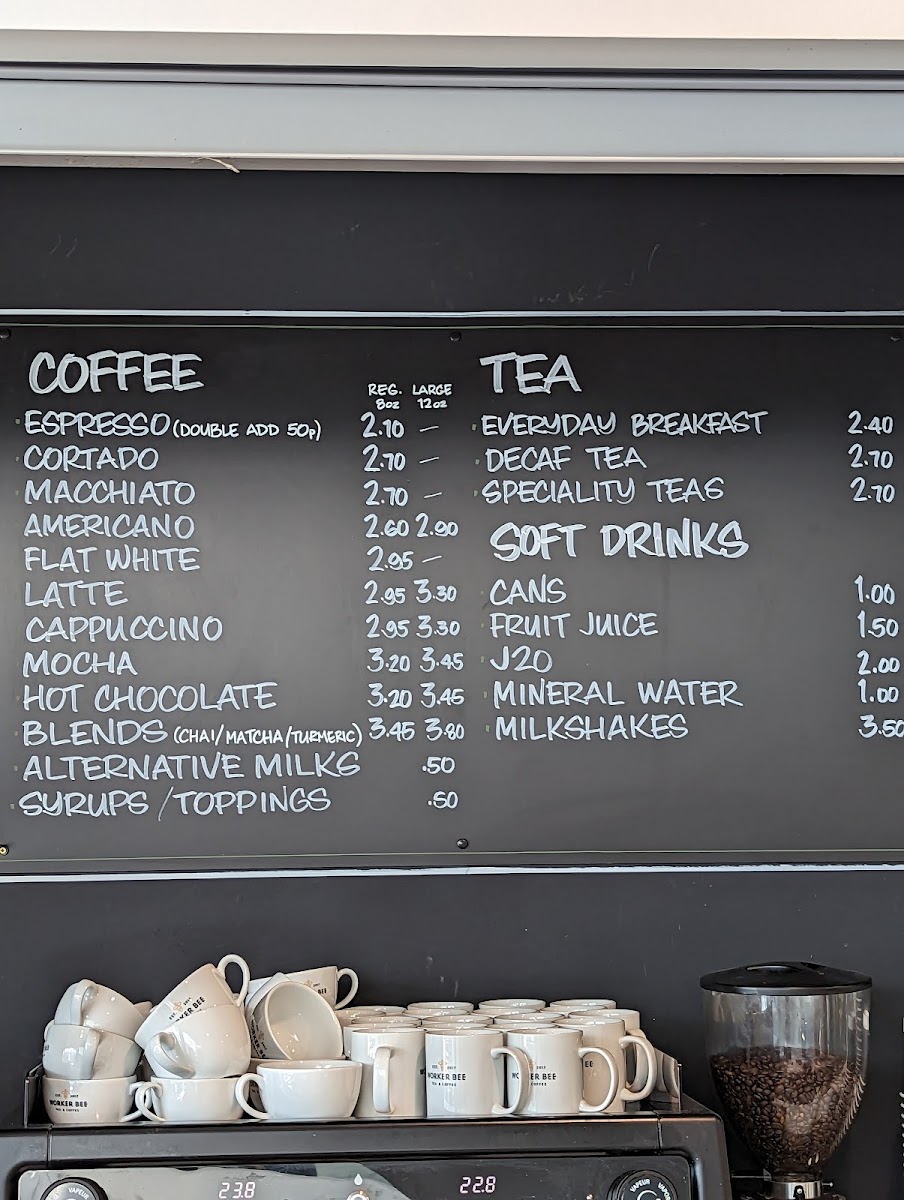 COFFEE
REG. LARGE
8oz 12oz
ESPRESSO (DOUBLE ADD 50p) 2.10 —
CORTADO 2.70 —
MACCHIATO 2.70 —
AMERICANO 2.60 2.90
FLAT WHITE 2.95 —
LATTE 2.95 3.30
CAPPUCCINO 2.95 3.30
MOCHA 3.20 3.45
HOT CHOCOLATE 3.20 3.45
BLENDS (CHAI/MATCHA/TURMERIC) 3.45 3.80
ALTERNATIVE MILKS .50
SYRUPS/TOPPINGS .50
TEA
EVERYDAY BREAKFAST 2.40
DECAF TEA 2.70
SPECIALITY TEAS 2.70
SOFT DRINKS
CANS 1.00
FRUIT JUICE 1.50
J2O 2.00
MINERAL WATER 1.00
MILKSHAKES 3.50
WORKER BEE
EST. 2017
WORKER BEE
TEA & COFFEE
EST. 2017
WORKER BEE
TEA & COFFEE
VAPEUR
23.8
22.8
VAPEUR